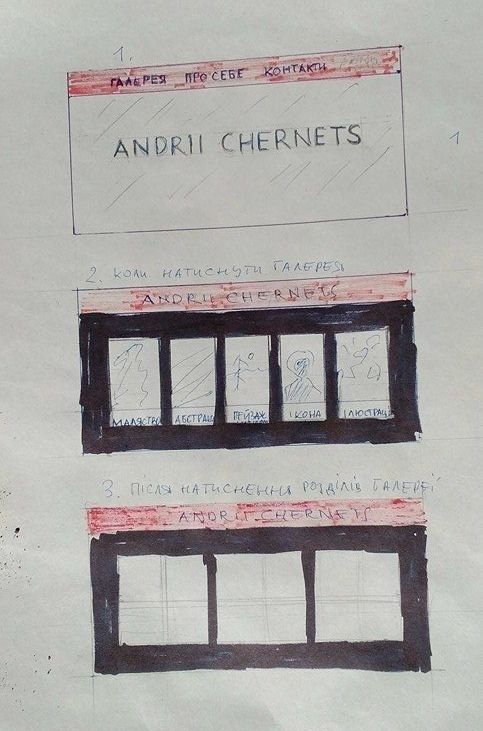 1.
ГАЛЕРЕЯ ПРО СЕБЕ КОНТАКТИ
ANDRII CHERNETS
1
2. КОЛИ НАТИСНУТИ ГАЛЕРЕЯ
ANDRII CHERNETS
МАЛЯСТВО АБСТРАЦ ПЕЙЗАЖ ІКОНА ІЛЮСТРАЦ
3. ПІСЛЯ НАТИСНЕННЯ РОЗДІЛІВ ГАЛЕРЕЇ
ANDRII CHERNETS